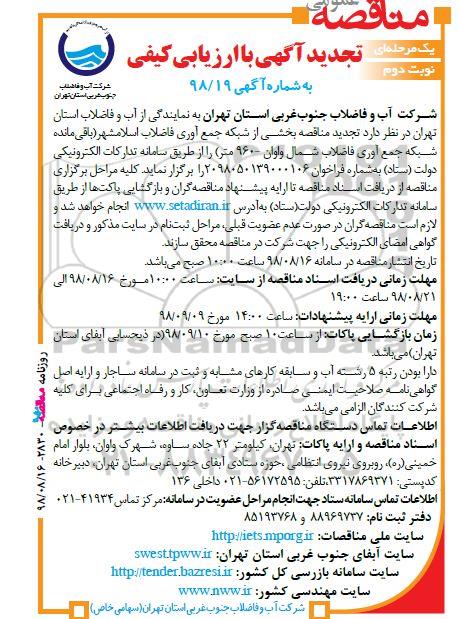 مناقصه عمومی
یک مرحله‌ای
نوبت دوم
تجدید آگهی با ارزیابی کیفی
به شماره آگهی ۹۸/۱۹
شرکت آب و فاضلاب
جنوب غربی استان تهران
شرکت آب و فاضلاب جنوب‌غربی استان تهران به نمایندگی از آب و فاضلاب استان
تهران در نظر دارد تجدید مناقصه بخشی از شبکه جمع آوری فاضلاب اسلامشهر(باقی‌مانده
شبکه جمع آوری فاضلاب شمال واوان -۹۶۰ متر) را از طریق سامانه تدارکات الکترونیکی
دولت (ستاد) به‌شماره فراخوان ۲۰۹۸۰۵۰۱۳۹۰۰۰۱۰۶را برگزار نماید. کلیه مراحل برگزاری
مناقصه از دریافت اسناد مناقصه تا ارایه پیشنهاد مناقصه‌گران و بازگشایی پاکت‌ها از طریق
سامانه تدارکات الکترونیکی دولت(ستاد) به‌آدرس www.setadiran.ir انجام خواهد شد و
لازم است مناقصه‌گران در صورت عدم عضویت قبلی، مراحل ثبت‌نام در سایت مذکور و دریافت
گواهی امضای الکترونیکی را جهت شرکت در مناقصه محقق سازند.
تاریخ انتشار مناقصه در سامانه ۹۸/۰۸/۱۶ ساعت ۱۰:۰۰ صبح می‌باشد.
مهلت زمانی دریافت اسناد مناقصه از سایت: ساعت ۱۰:۰۰مورخ ۹۸/۰۸/۱۶ الی
۹۸/۰۸/۲۱ ساعت ۱۹:۰۰
مهلت زمانی ارایه پیشنهادات: ساعت ۱۴:۰۰ مورخ ۹۸/۰۹/۰۹
زمان بازگشایی پاکات: از ساعت۱۰ صبح مورخ ۹۸/۰۹/۱۰(در ذیحسابی آبفای استان
تهران)می‌باشد.
دارا بودن رتبه ۵ رشته آب و سابقه کارهای مشابه و ثبت در سامانه ساجار و ارایه اصل
گواهی‌نامه صلاحیت ایمنی صادره از وزارت تعاون، کار و رفاه اجتماعی برای کلیه
شرکت کنندگان الزامی می‌باشد.
اطلاعات تماس دستگاه مناقصه‌گزار جهت دریافت اطلاعات بیشتر در خصوص
اسناد مناقصه و ارایه پاکات: تهران، کیلومتر ۲۲ جاده ساوه، شهرک واوان، بلوار امام
خمینی(ره)، روبروی نیروی انتظامی ،حوزه ستادی آبفای جنوب‌غربی استان تهران، دبیرخانه
کدپستی: ۳۳۱۷۸۶۹۳۷۱،تلفن:۵۶۱۷۲۵۹۵-۰۲۱ داخلی ۱۳۶
اطلاعات تماس سامانه ستاد جهت انجام مراحل عضویت در سامانه: مرکز تماس۴۱۹۳۴-۰۲۱
دفتر ثبت نام: ۸۸۹۶۹۷۳۷ و ۸۵۱۹۳۷۶۸
سایت ملی مناقصات: http://iets.mporg.ir
سایت آبفای جنوب غربی استان تهران: swest.tpww.ir
سایت سامانه بازرسی کل کشور: http://tender.bazresi.ir
سایت مهندسی کشور: www.nww.ir
شرکت آب و فاضلاب جنوب غربی استان تهران(سهامی خاص)
روزنامه مناقصه - ۲۸۳۰ - ۹۸/۰۸/۱۶
ParsNamadData